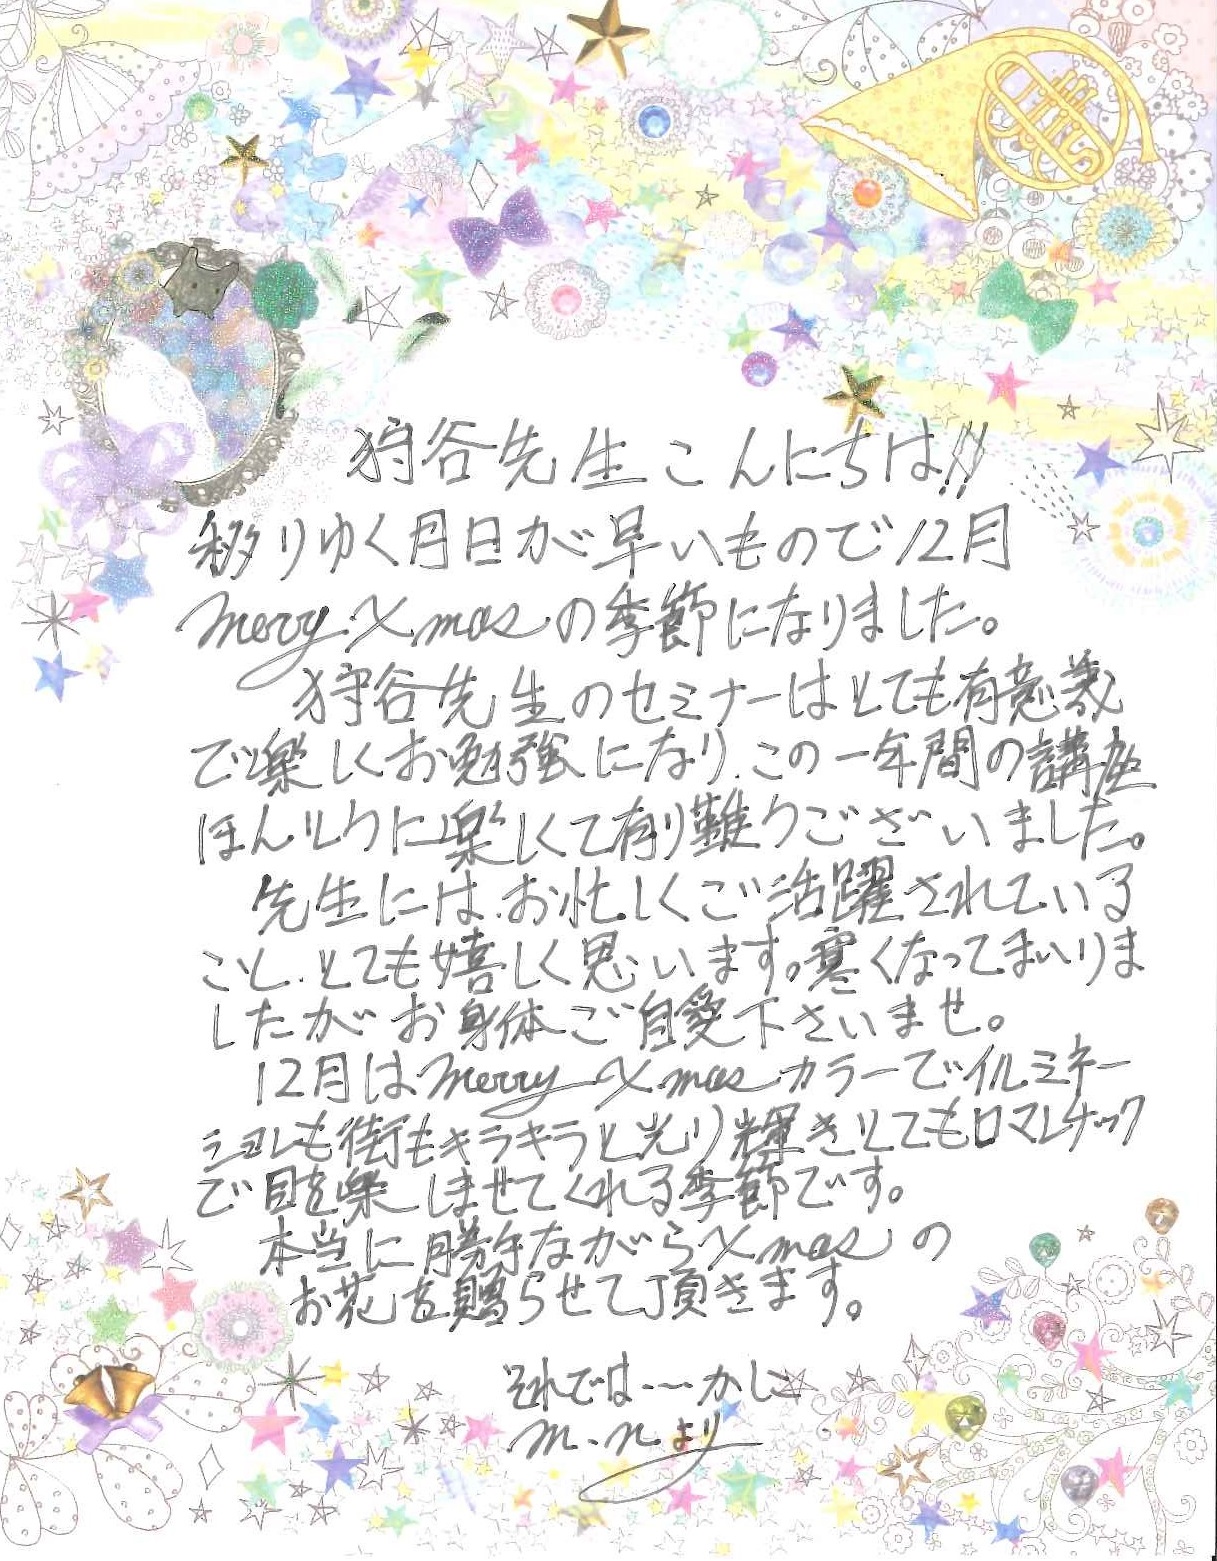 狩谷先生こんにちは!!
移りゆく月日が早いもので12月
Merry Xmasの季節になりました。
狩谷先生のセミナーはとても有意義
で楽しくお勉強になり、この一年間の講座
ほんとうに楽しくて有り難うございました。
先生には、お忙しくご活躍されている
こと、とても嬉しく思います。寒くなってまいりま
したがお身体ご自愛下さいませ。
12月はMerry Xmasカラーでイルミネー
ションも街もキラキラと光り輝きとてもロマンチック
で目を楽しませてくれる季節です。
本当に勝手ながらXmasの
お花を贈らせて頂きます。
それでは――かしこ
m.nより